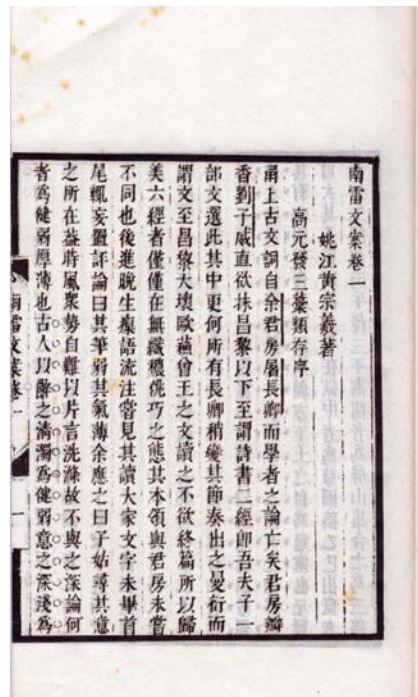 南雷文案卷一
姚江黃宗羲著
高元發三葉類存序
甬上古文詞自余君房屠長卿而學者之論亡矣君房瓣
香劉子威直欲抹昌黎以下至謂詩書二經卽吾夫子一
部文選此其中更何所有長卿稍變其節奏出之曼衍而
謂文至昌黎大壞歐蘇曾王之文讀之不欲終篇所以歸
美六經者僅僅在無纖穠佻巧之態其本領與君房未嘗
不同也後進晚生瘝語流注嘗見其讀大家文字未畢首
尾輒妄置評論曰其筆弱其氣薄余應之曰子姑尋其意
之所在葢時風眾勢自難以片言洗滌故不與之深論何
者爲健弱厚薄也古人以辭之清濁爲健弱意之深淺爲
南雷文案卷一
一